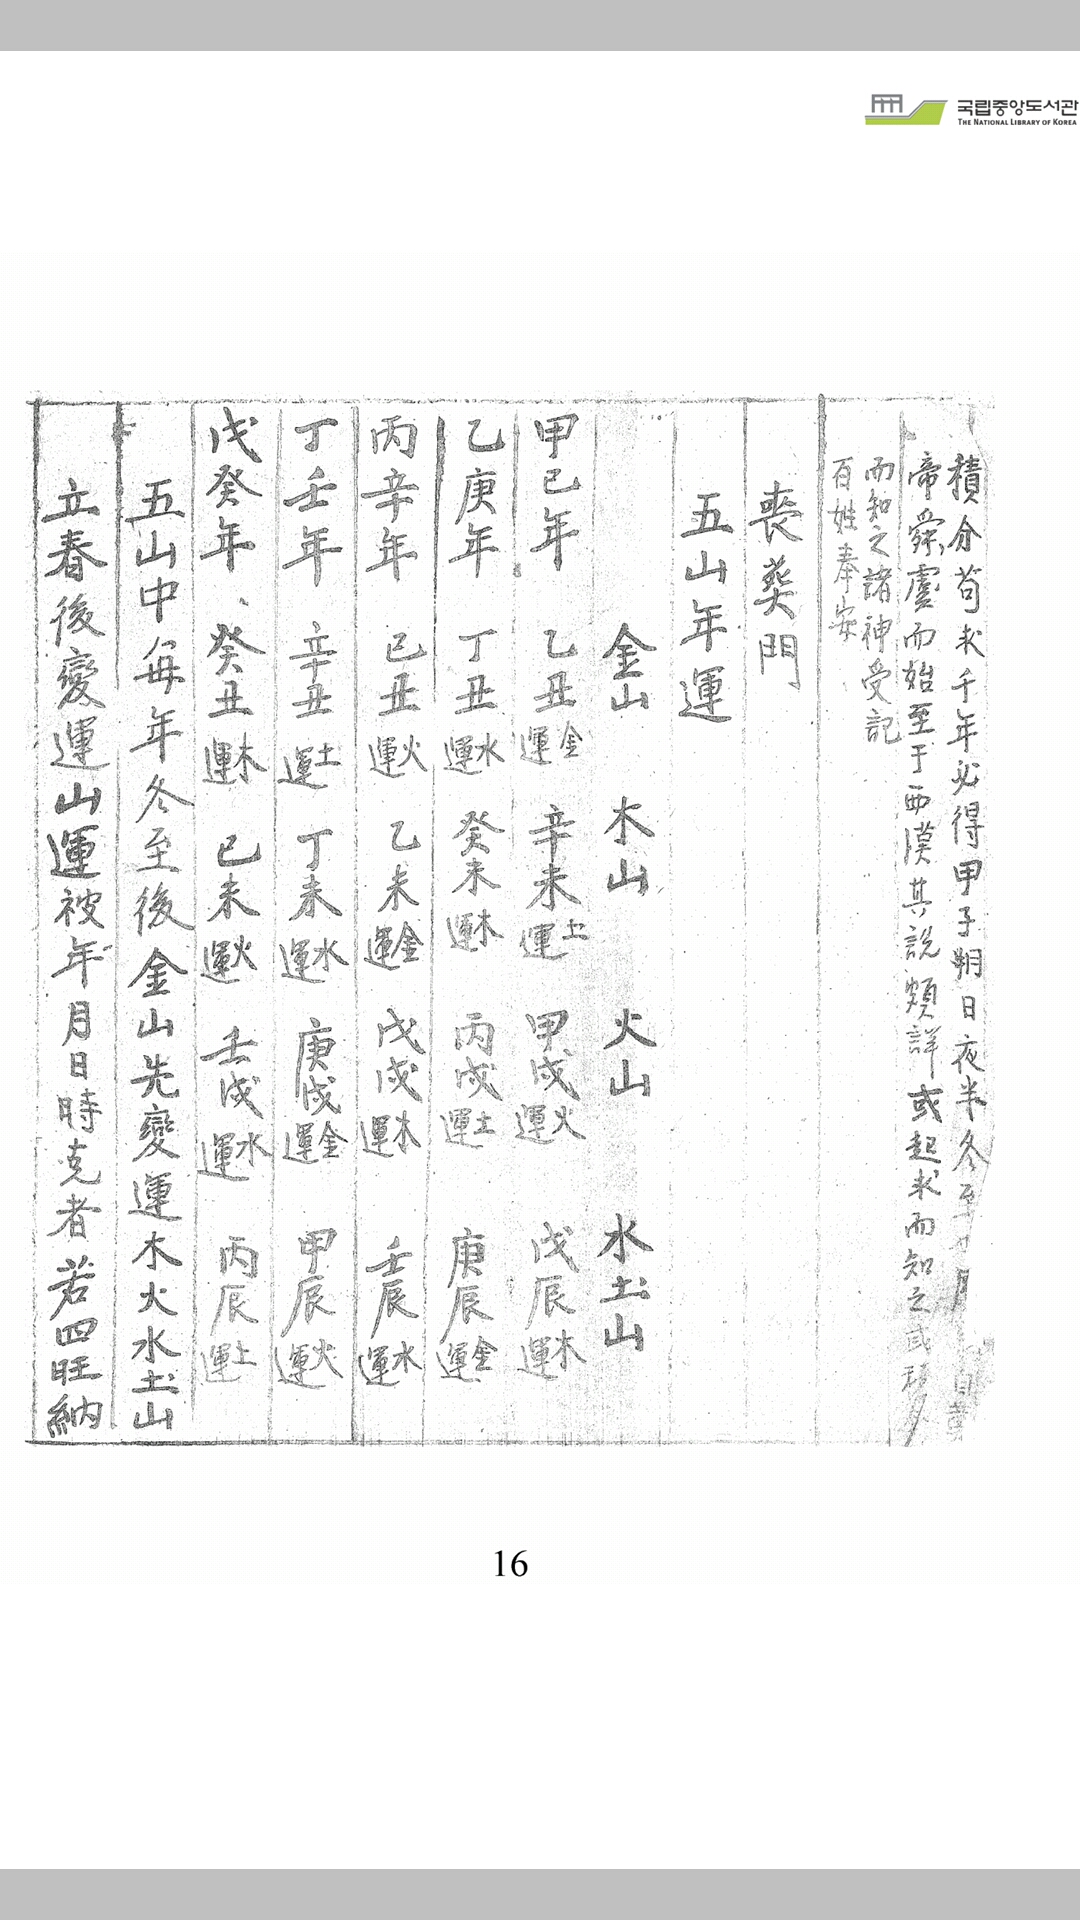 국립중앙도서관
THE NATIONAL LIBRARY OF KOREA
積分苟求千年必得甲子朔日夜半冬至
帝舜虞而始至于西漢其說頗詳或起求而知之或
而知之諸神受記
百姓奉安
喪葬門
五山年運
金山 木山 火山 水土山
甲己年 乙丑金運 辛未土運 甲戌火運 戊辰木運
乙庚年 丁丑水運 癸未木運 丙戌土運 庚辰金運
丙辛年 己丑火運 乙未金運 戊戌木運 壬辰水運
丁壬年 辛丑土運 丁未水運 庚戌金運 甲辰火運
戊癸年 癸丑木運 己未火運 壬戌水運 丙辰土運
五山中每年冬至後金山先變運木火水土山
立春後變運山運被年月日時克者若四旺納
16